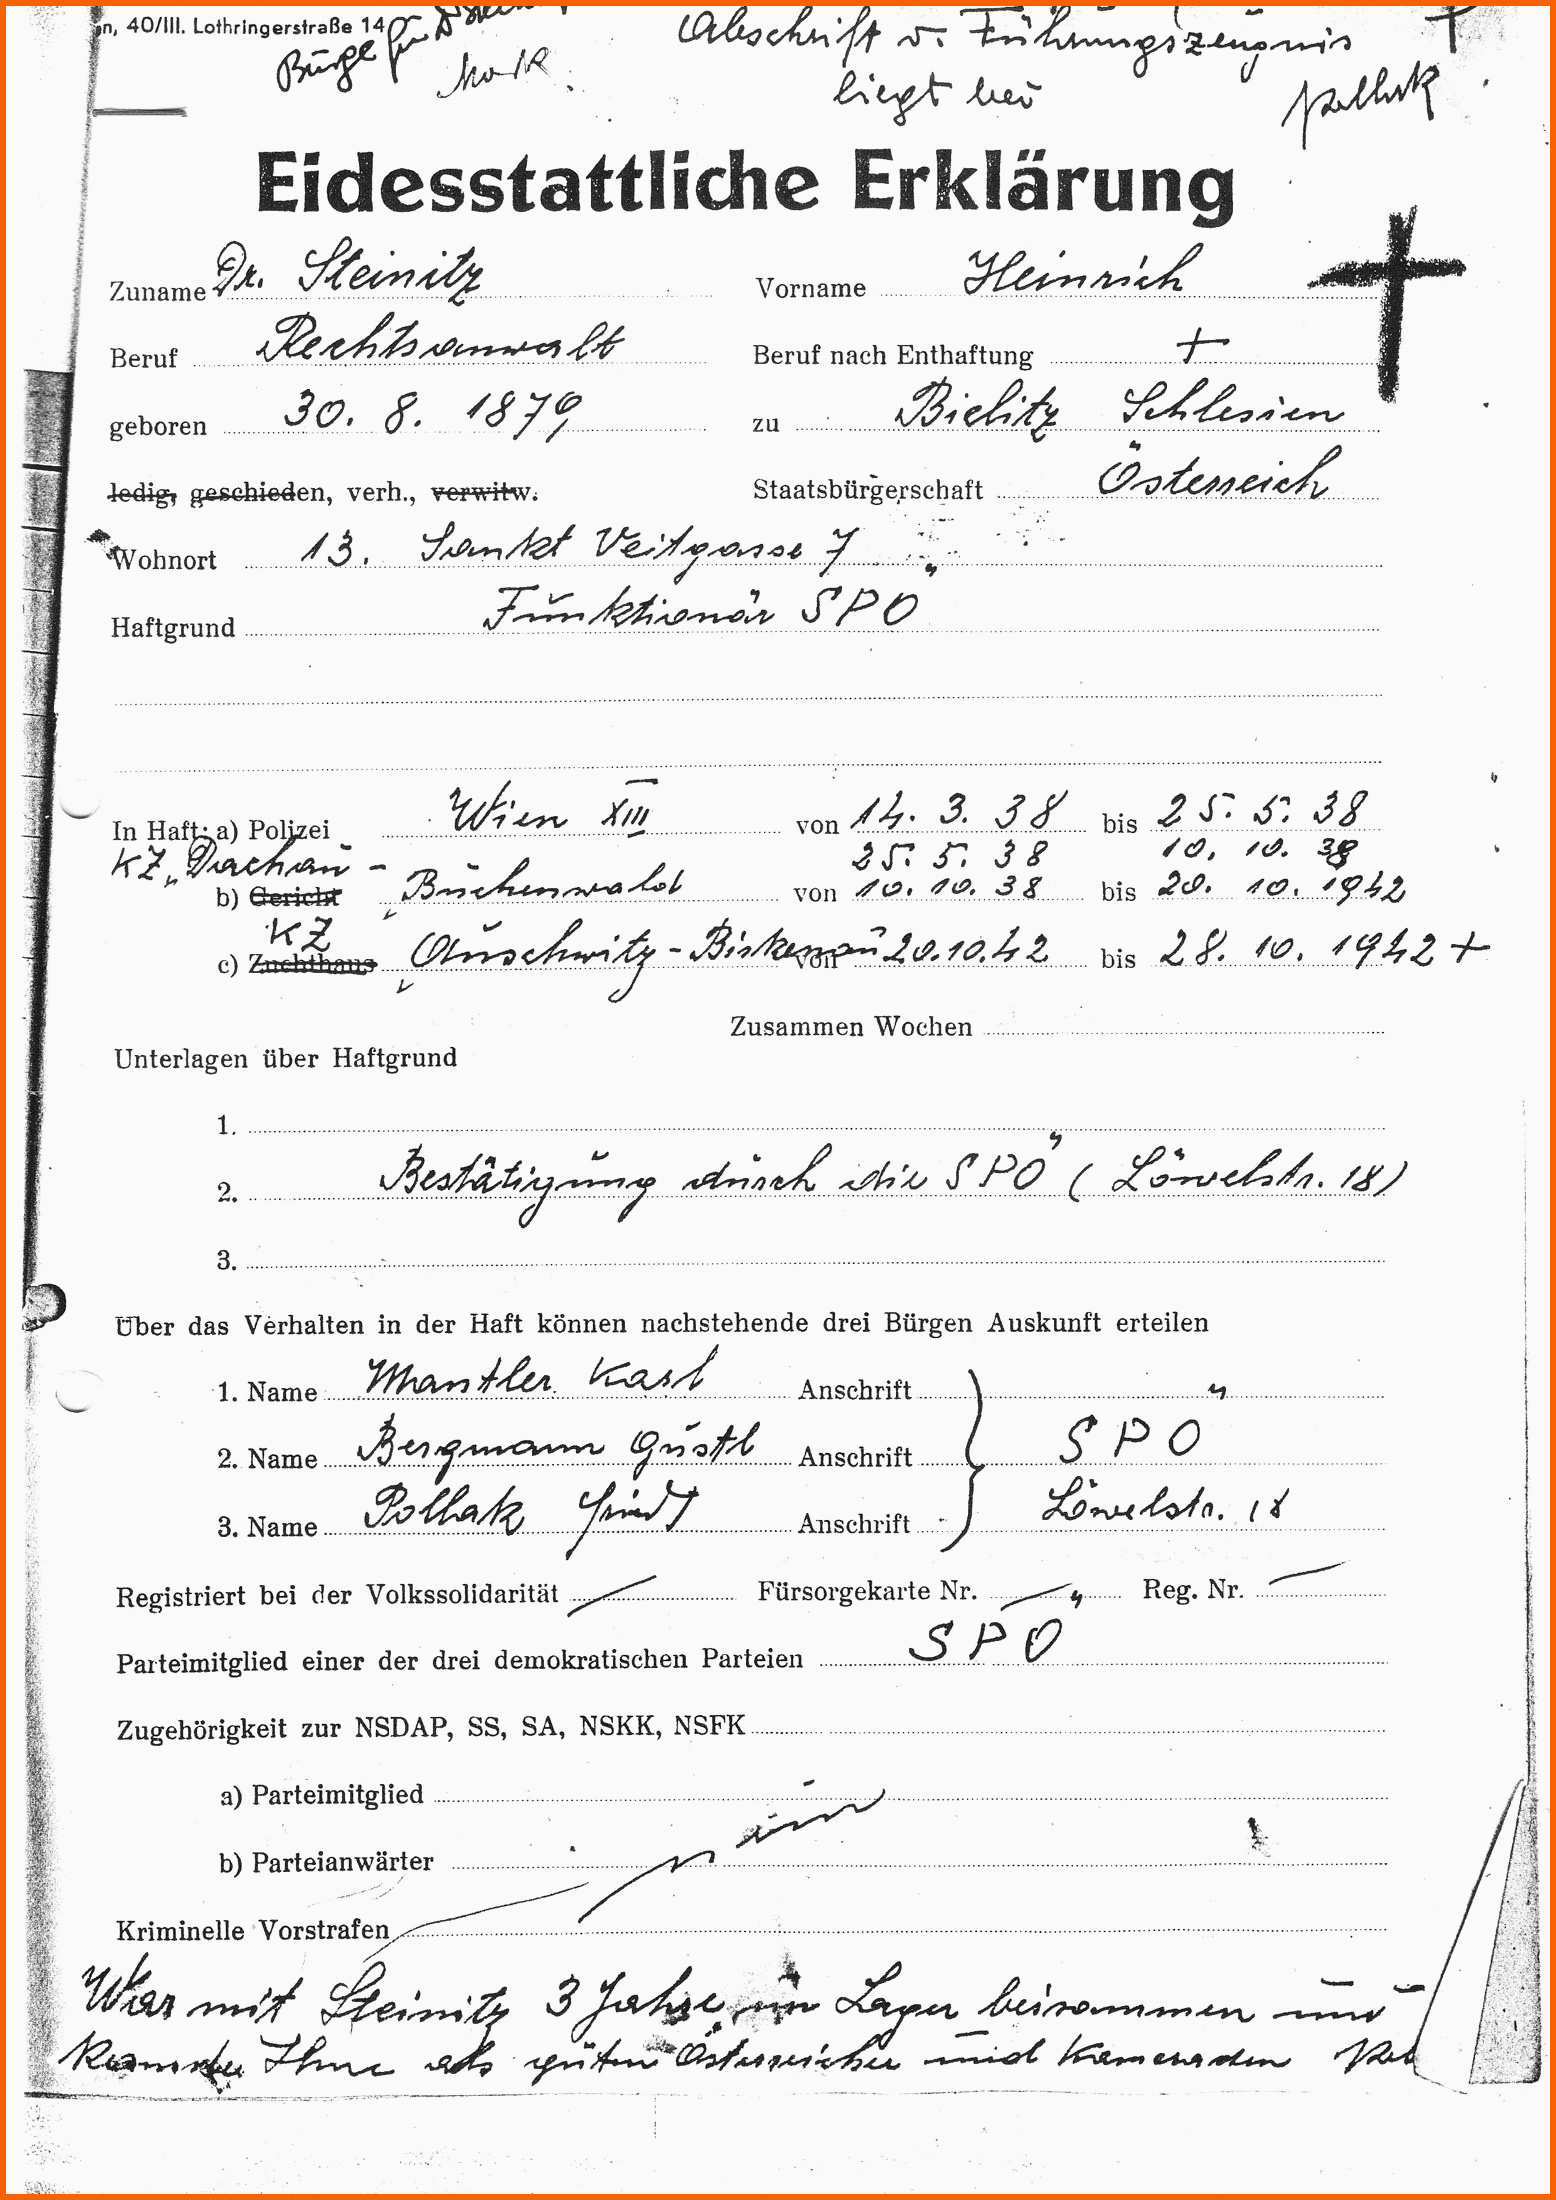 n, 40/III. Lothringerstraße 14
Bürge für
Abschrift v. Führungszeugnis
liegt bei
Pollak
Eidesstattliche Erklärung
Zuname Dr. Steinitz Vorname Heinrich
Beruf Rechtsanwalt Beruf nach Enthaftung +
geboren 30. 8. 1879 zu Bielitz Schlesien
ledig, geschieden, verh., verwitw. Staatsbürgerschaft Österreich
Wohnort 13. Sankt Veitgasse 7
Haftgrund Funktionär SPÖ
In Haft: a) Polizei Wien XIII von 14. 3. 38 bis 25. 5. 38
KZ Dachau - 25. 5. 38 10. 10. 38
b) Gericht Buchenwald von 10. 10. 38 bis 20. 10. 1942
KZ
c) Zuchthaus Auschwitz-Birkenau von 20.10.42 bis 28. 10. 1942 +
Zusammen Wochen
Unterlagen über Haftgrund
1.
2. Bestätigung durch die SPÖ (Löwelstr. 18)
3.
Über das Verhalten in der Haft können nachstehende drei Bürgen Auskunft erteilen
1. Name Mantler Karl Anschrift
2. Name Bergmann Gustl Anschrift SPÖ
3. Name Pollak Anschrift Löwelstr. 18
Registriert bei der Volkssolidarität Fürsorgekarte Nr. Reg. Nr.
Parteimitglied einer der drei demokratischen Parteien SPÖ
Zugehörigkeit zur NSDAP, SS, SA, NSKK, NSFK
a) Parteimitglied
nein
b) Parteianwärter
Kriminelle Vorstrafen
War mit Steinitz 3 Jahre im Lager beisammen und
Ihne als guten Österreicher und Kameraden